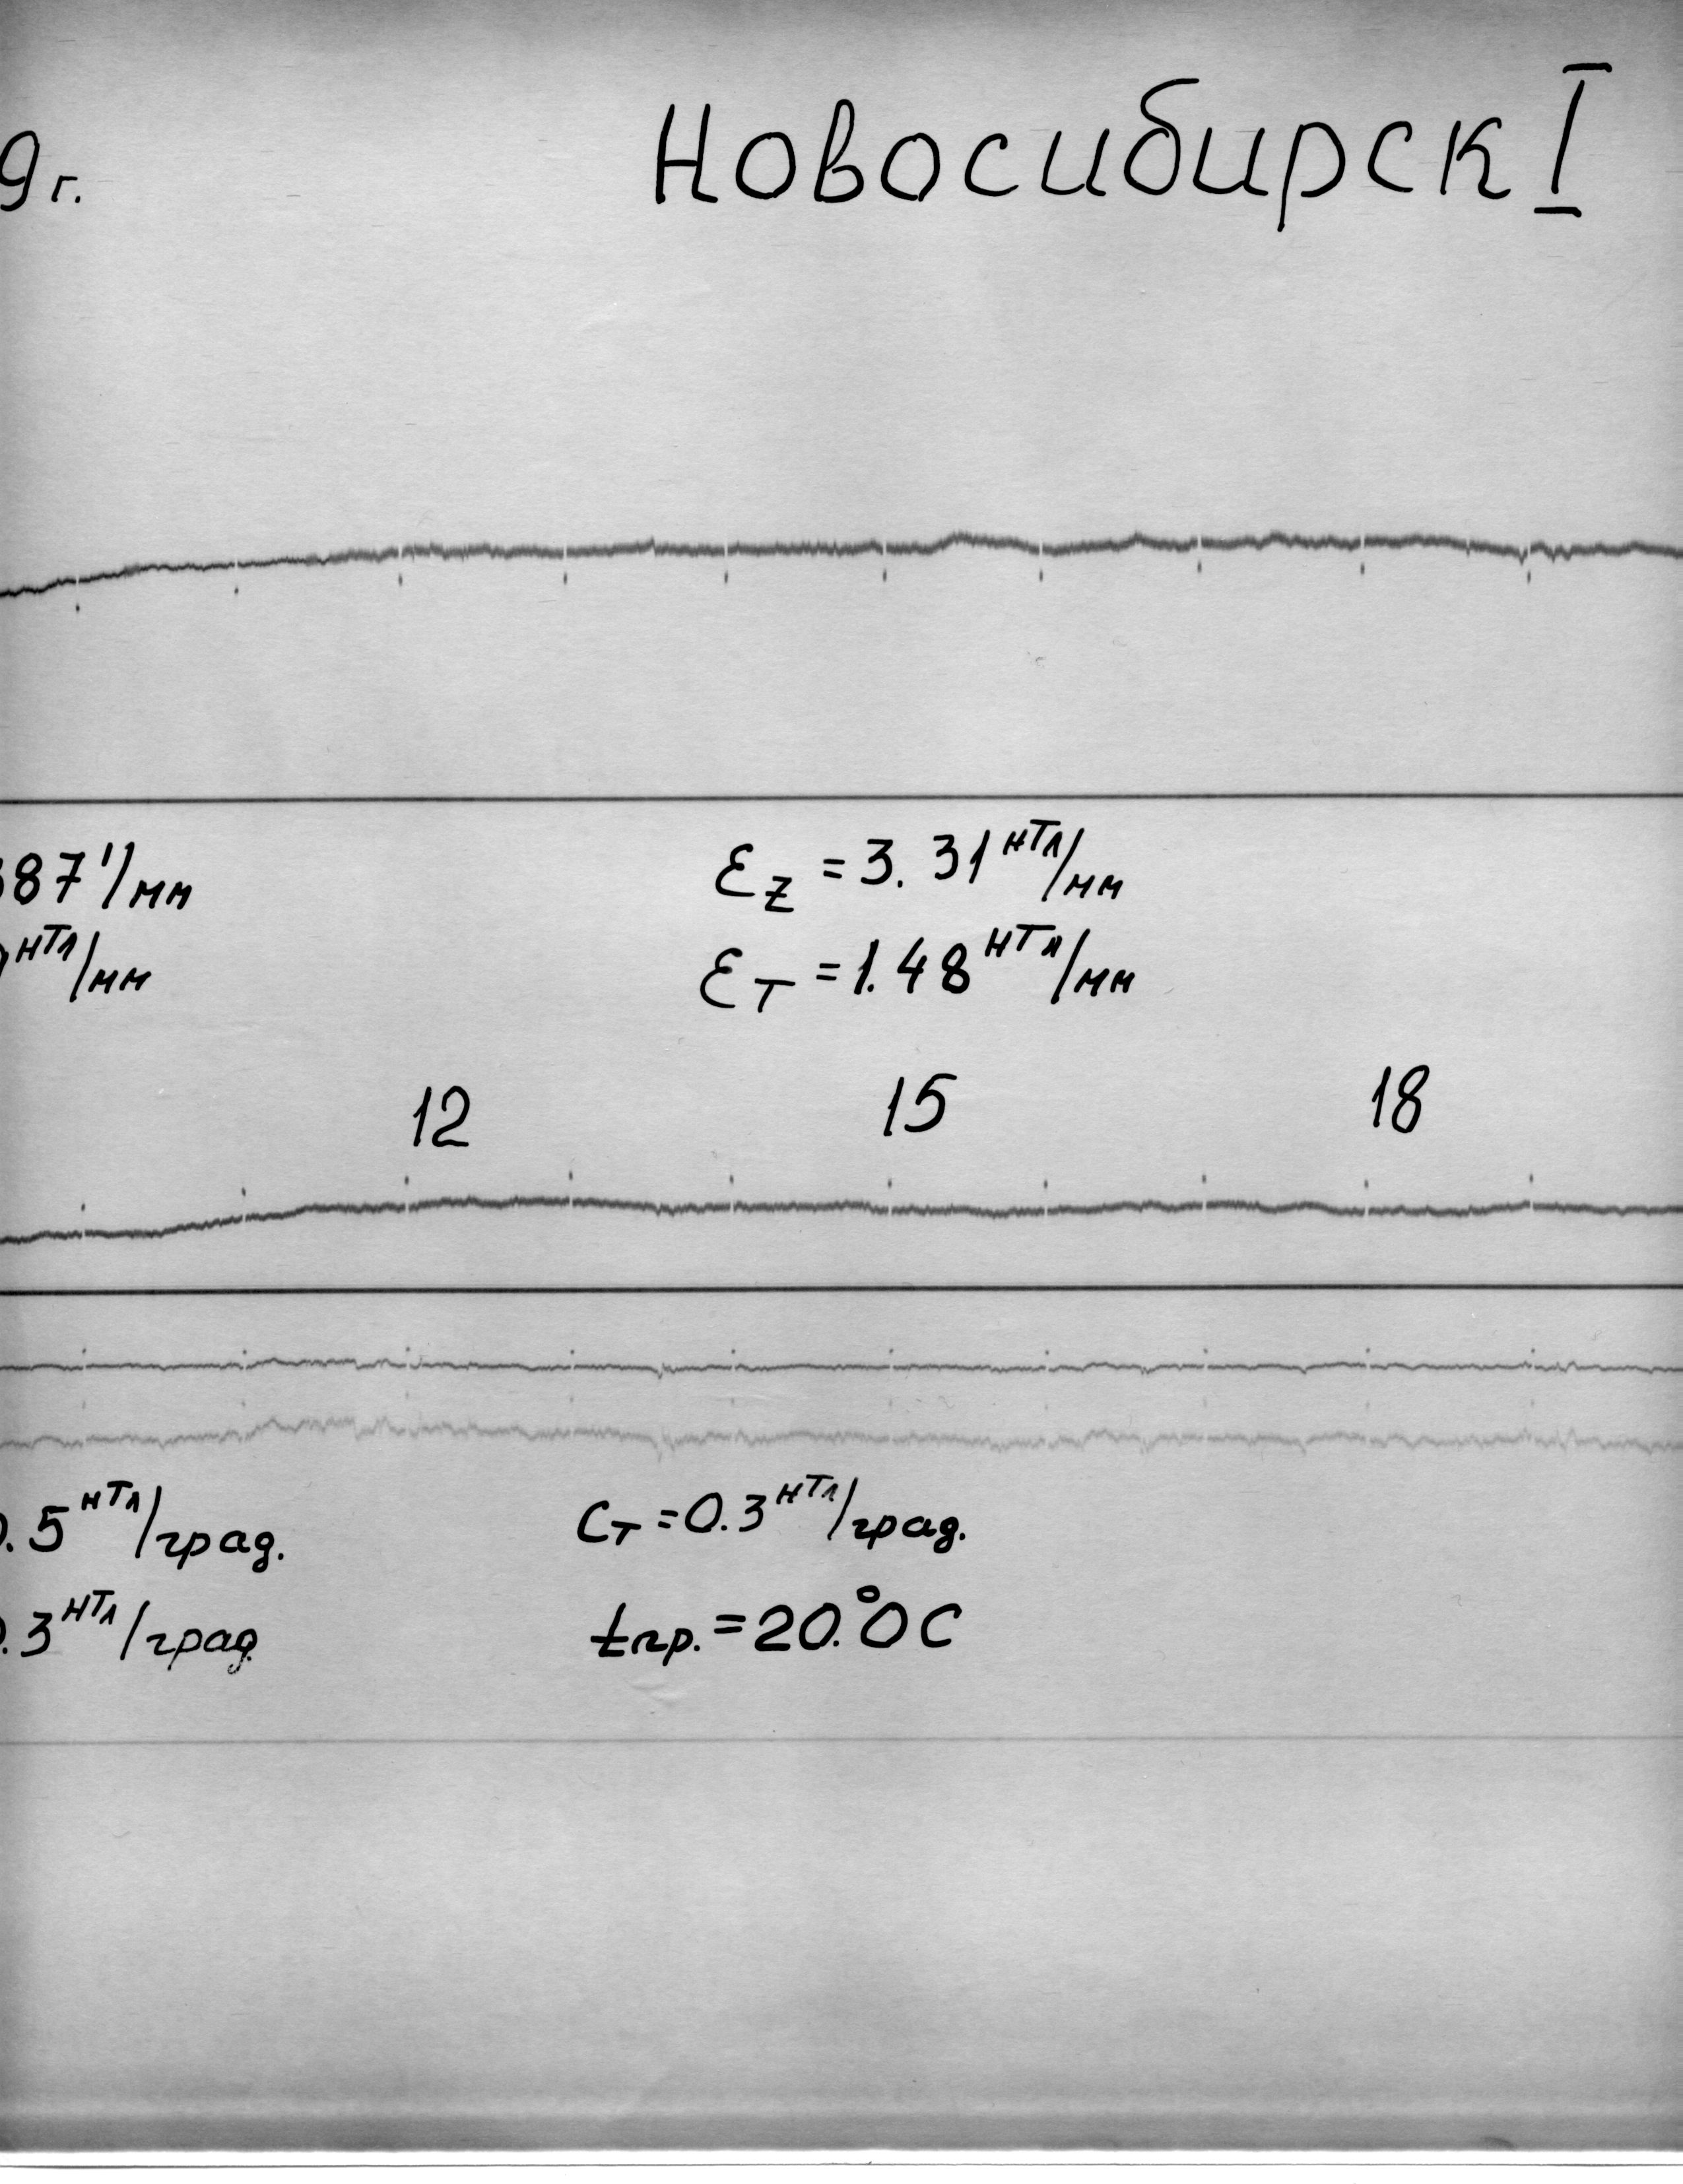 9г. Новосибирск I
87'/мм εz = 3.31 нТл/мм
нТл/мм εT = 1.48 нТл/мм
12 15 18
.5 нТл/град. CT = 0.3 нТл/град.
.3 нТл/град. tпр. = 20.°0 C